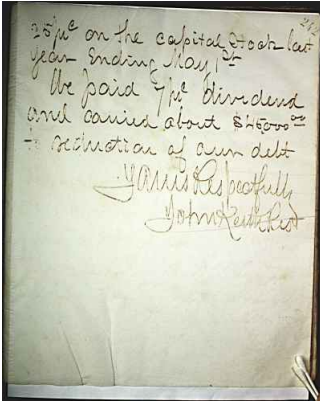 25 pc on the capital stock last
year Ending May 1st
We paid 7 pc dividend
and carried about $45000 00
to reduction of our debt
Yours Respectfully
John